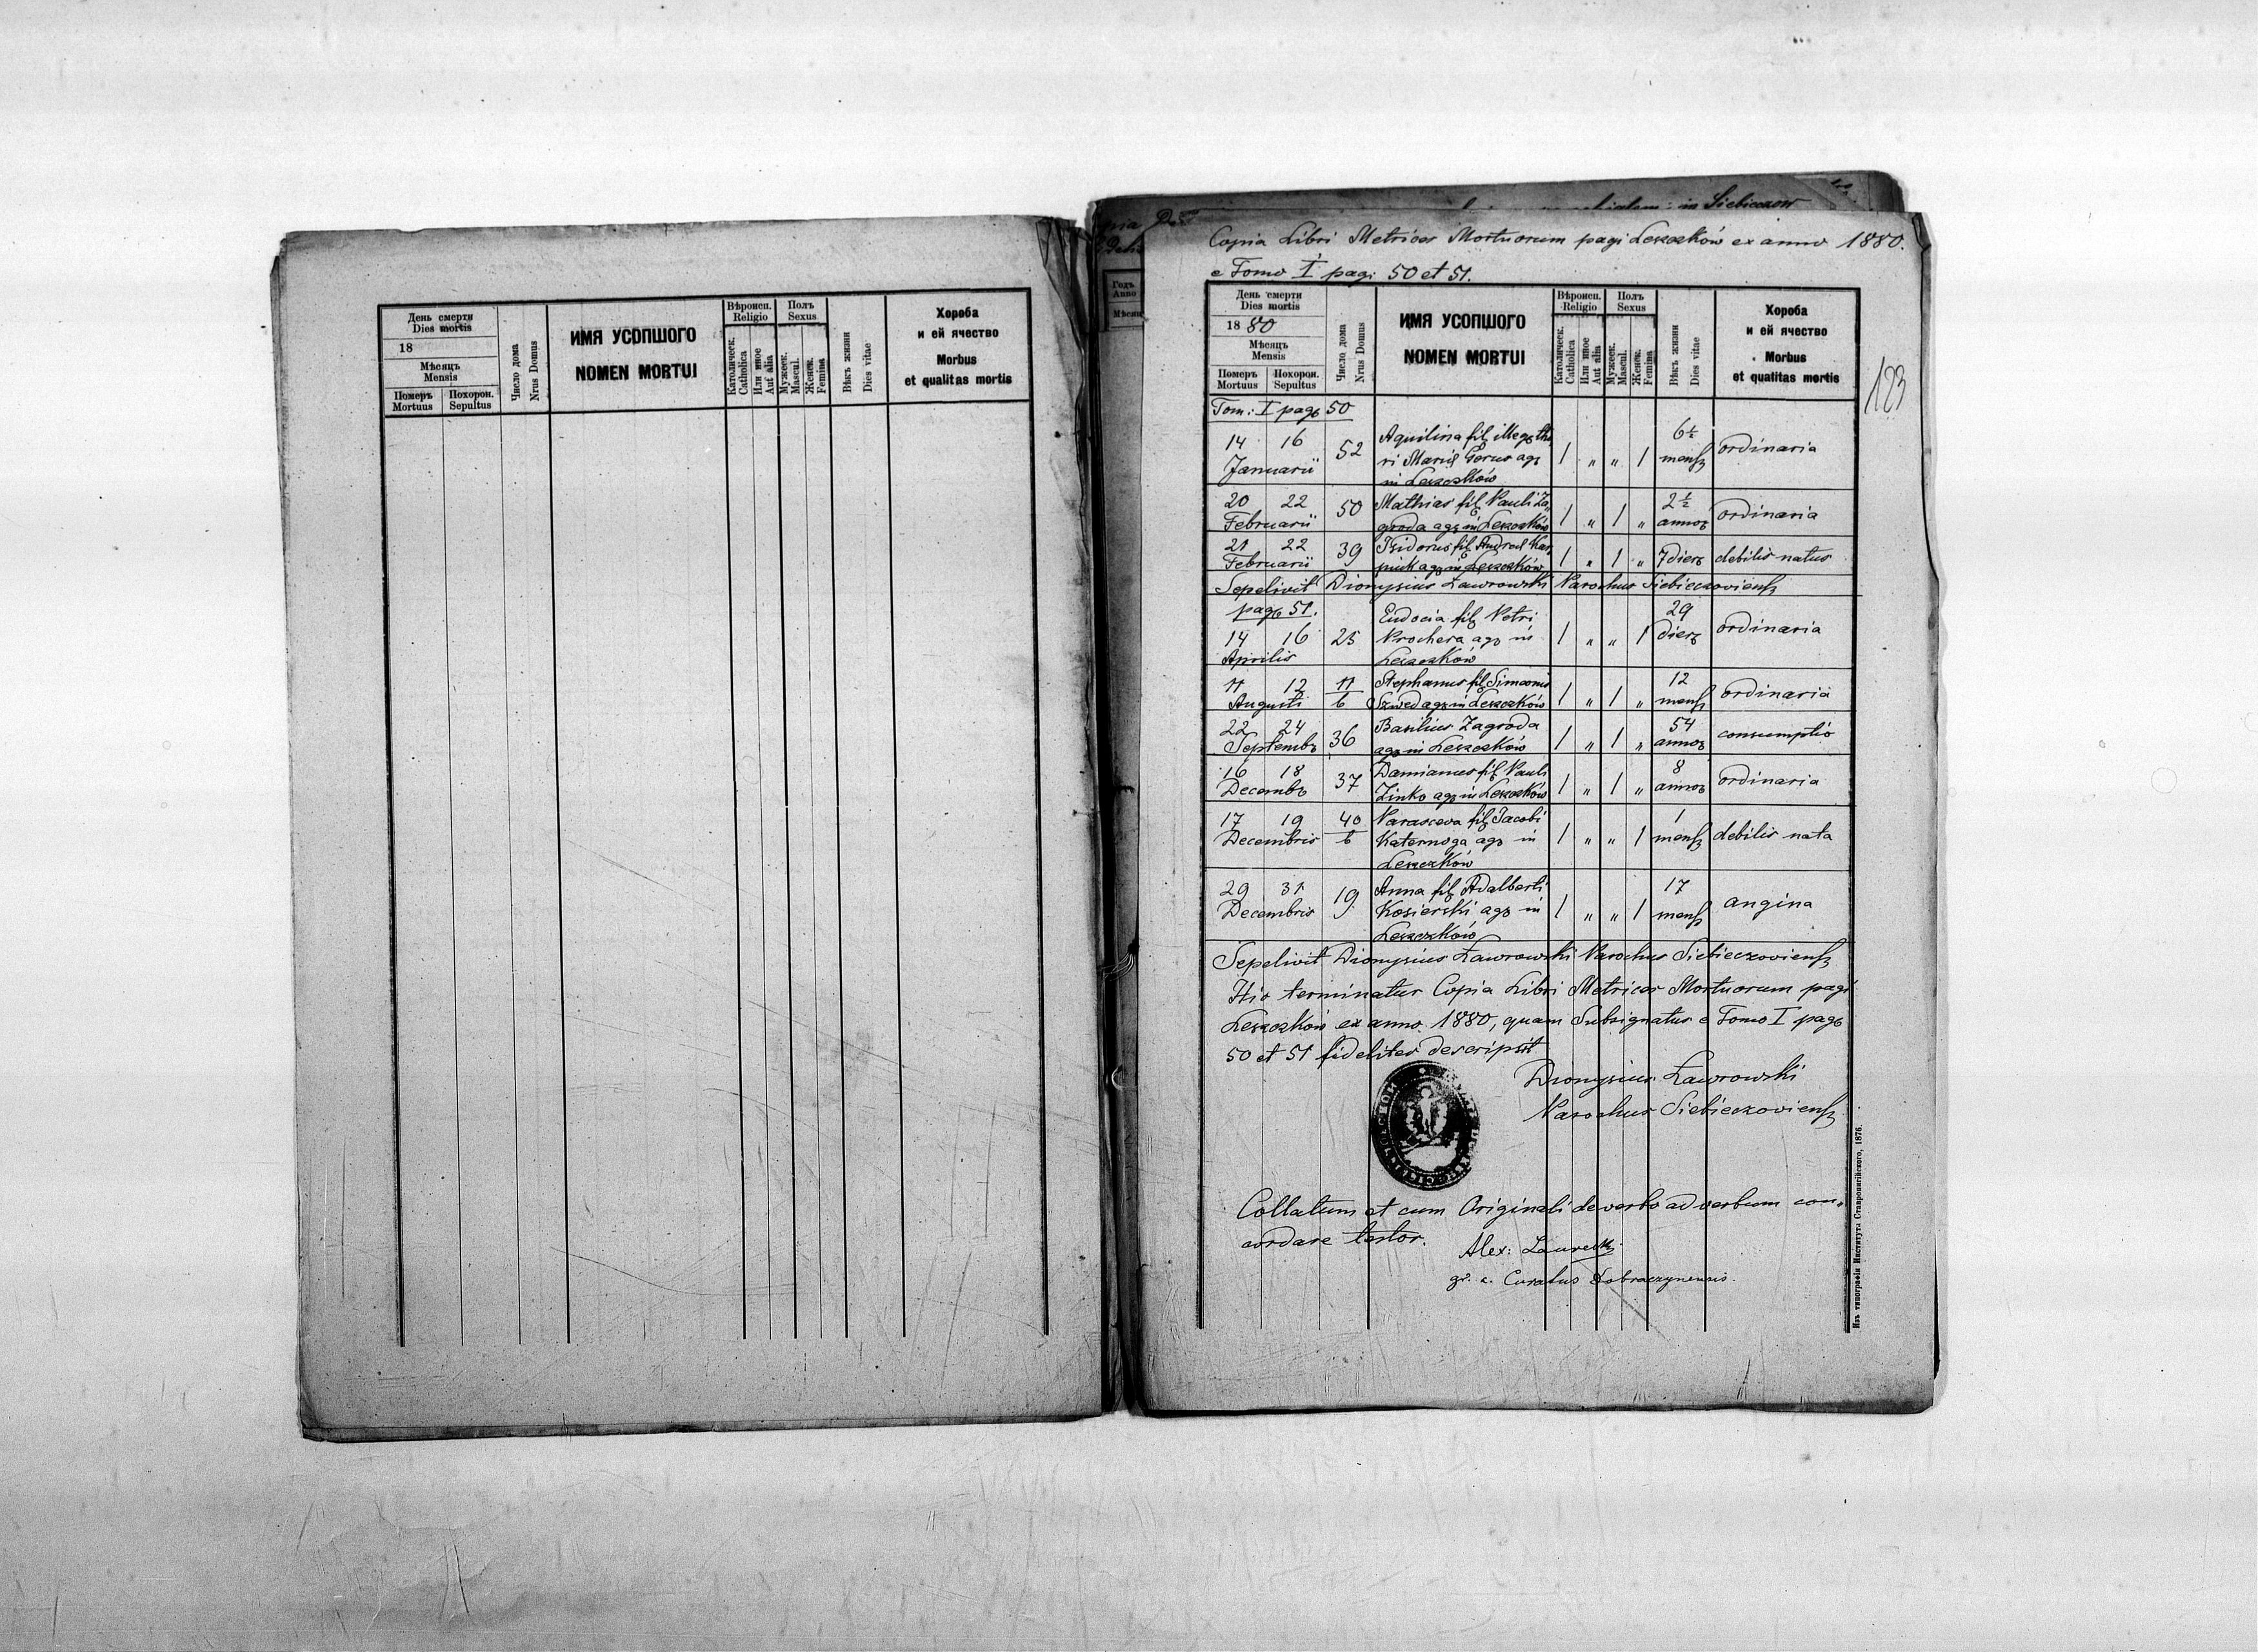 День смерти
Dies mortis
18
Мѣсяцъ
Mensis
Померъ
Mortuus
Похорон.
Sepultus
Число дома
Nrus Domus
ИМЯ УСОПШОГО
NOMEN MORTUI
Вѣроисп.
Religio
Католическ.
Catholica
Или иное
Aut alia
Полъ
Sexus
Мужеск.
Mascul.
Женск.
Femina
Вѣкъ жизни
Dies vitae
Хороба
и ей ячество
Morbus
et qualitas mortis
in Siebieczow
Годъ
Anno
Copia Libri Metrices Mortuorum pagi Leszczków ex anno 1880.
e Tomo I pag: 50 et 51.
123
День смерти
Dies mortis
1880
Мѣсяцъ
Mensis
Померъ
Mortuus
Похорон.
Sepultus
Число дома
Nrus Domus
ИМЯ УСОПШОГО
NOMEN MORTUI
Вѣроисп.
Religio
Католическ.
Catholica
Или иное
Aut alia
Полъ
Sexus
Мужеск.
Mascul.
Женск.
Femina
Вѣкъ жизни
Dies vitae
Хороба
и ей ячество
Morbus
et qualitas mortis
Tom: I pag 50
14 16 Januarii 52 Aquilina fil illeg thori Mariæ Gerus agr in Leszczków 1 " " 1 6½ mens ordinaria
20 22 Februarii 50 Mathias fil Pauli Zagroda agr in Leszczków 1 " 1 " 2½ annor ordinaria
21 22 Februarii 39 Isidorus fil Andreæ agr in Leszczków 1 " 1 " 7 dier debilis natus
Sepelivit Dionysius Ławrowski Parochus Siebieczoviens
pag 51.
14 16 Aprilis 25 Eudocia fil Petri Prochera agr in Leszczków 1 " " 1 29 dier ordinaria
11 12 Augusti 11/b Stephanus fil Simeonis Szwed agr in Leszczków 1 " 1 " 12 mens ordinaria
22 24 Septembr 36 Basilius Zagroda agr in Leszczków 1 " 1 " 54 annor consumptio
16 18 Decembr 37 Damianus fil Pauli Zinko agr in Leszczków 1 " 1 " 8 annor ordinaria
17 19 Decembris 40/b Parasceva fil Jacobi Katernoga agr in Leszczków 1 " " 1 1 mens debilis nata
29 31 Decembris 19 Anna fil Adalberti Kosierski agr in Leszczków 1 " " 1 17 mens angina
Sepelivit Dionysius Ławrowski Parochus Siebieczoviens
Hic terminatur Copia Libri Metrices Mortuorum pagi
Leszczków ex anno 1880, quam Subsignatus e Tomo I pag
50 et 51 fideliter descripsit
Dionysius Ławrowski
Parochus Siebieczoviens
Collatum et cum Originali de verbo ad verbum con-
cordare testor.
Alex: Laurecki
gr. c. Curatus Dobraczynensis.
Изъ типографіи Института Ставропигійского, 1876.